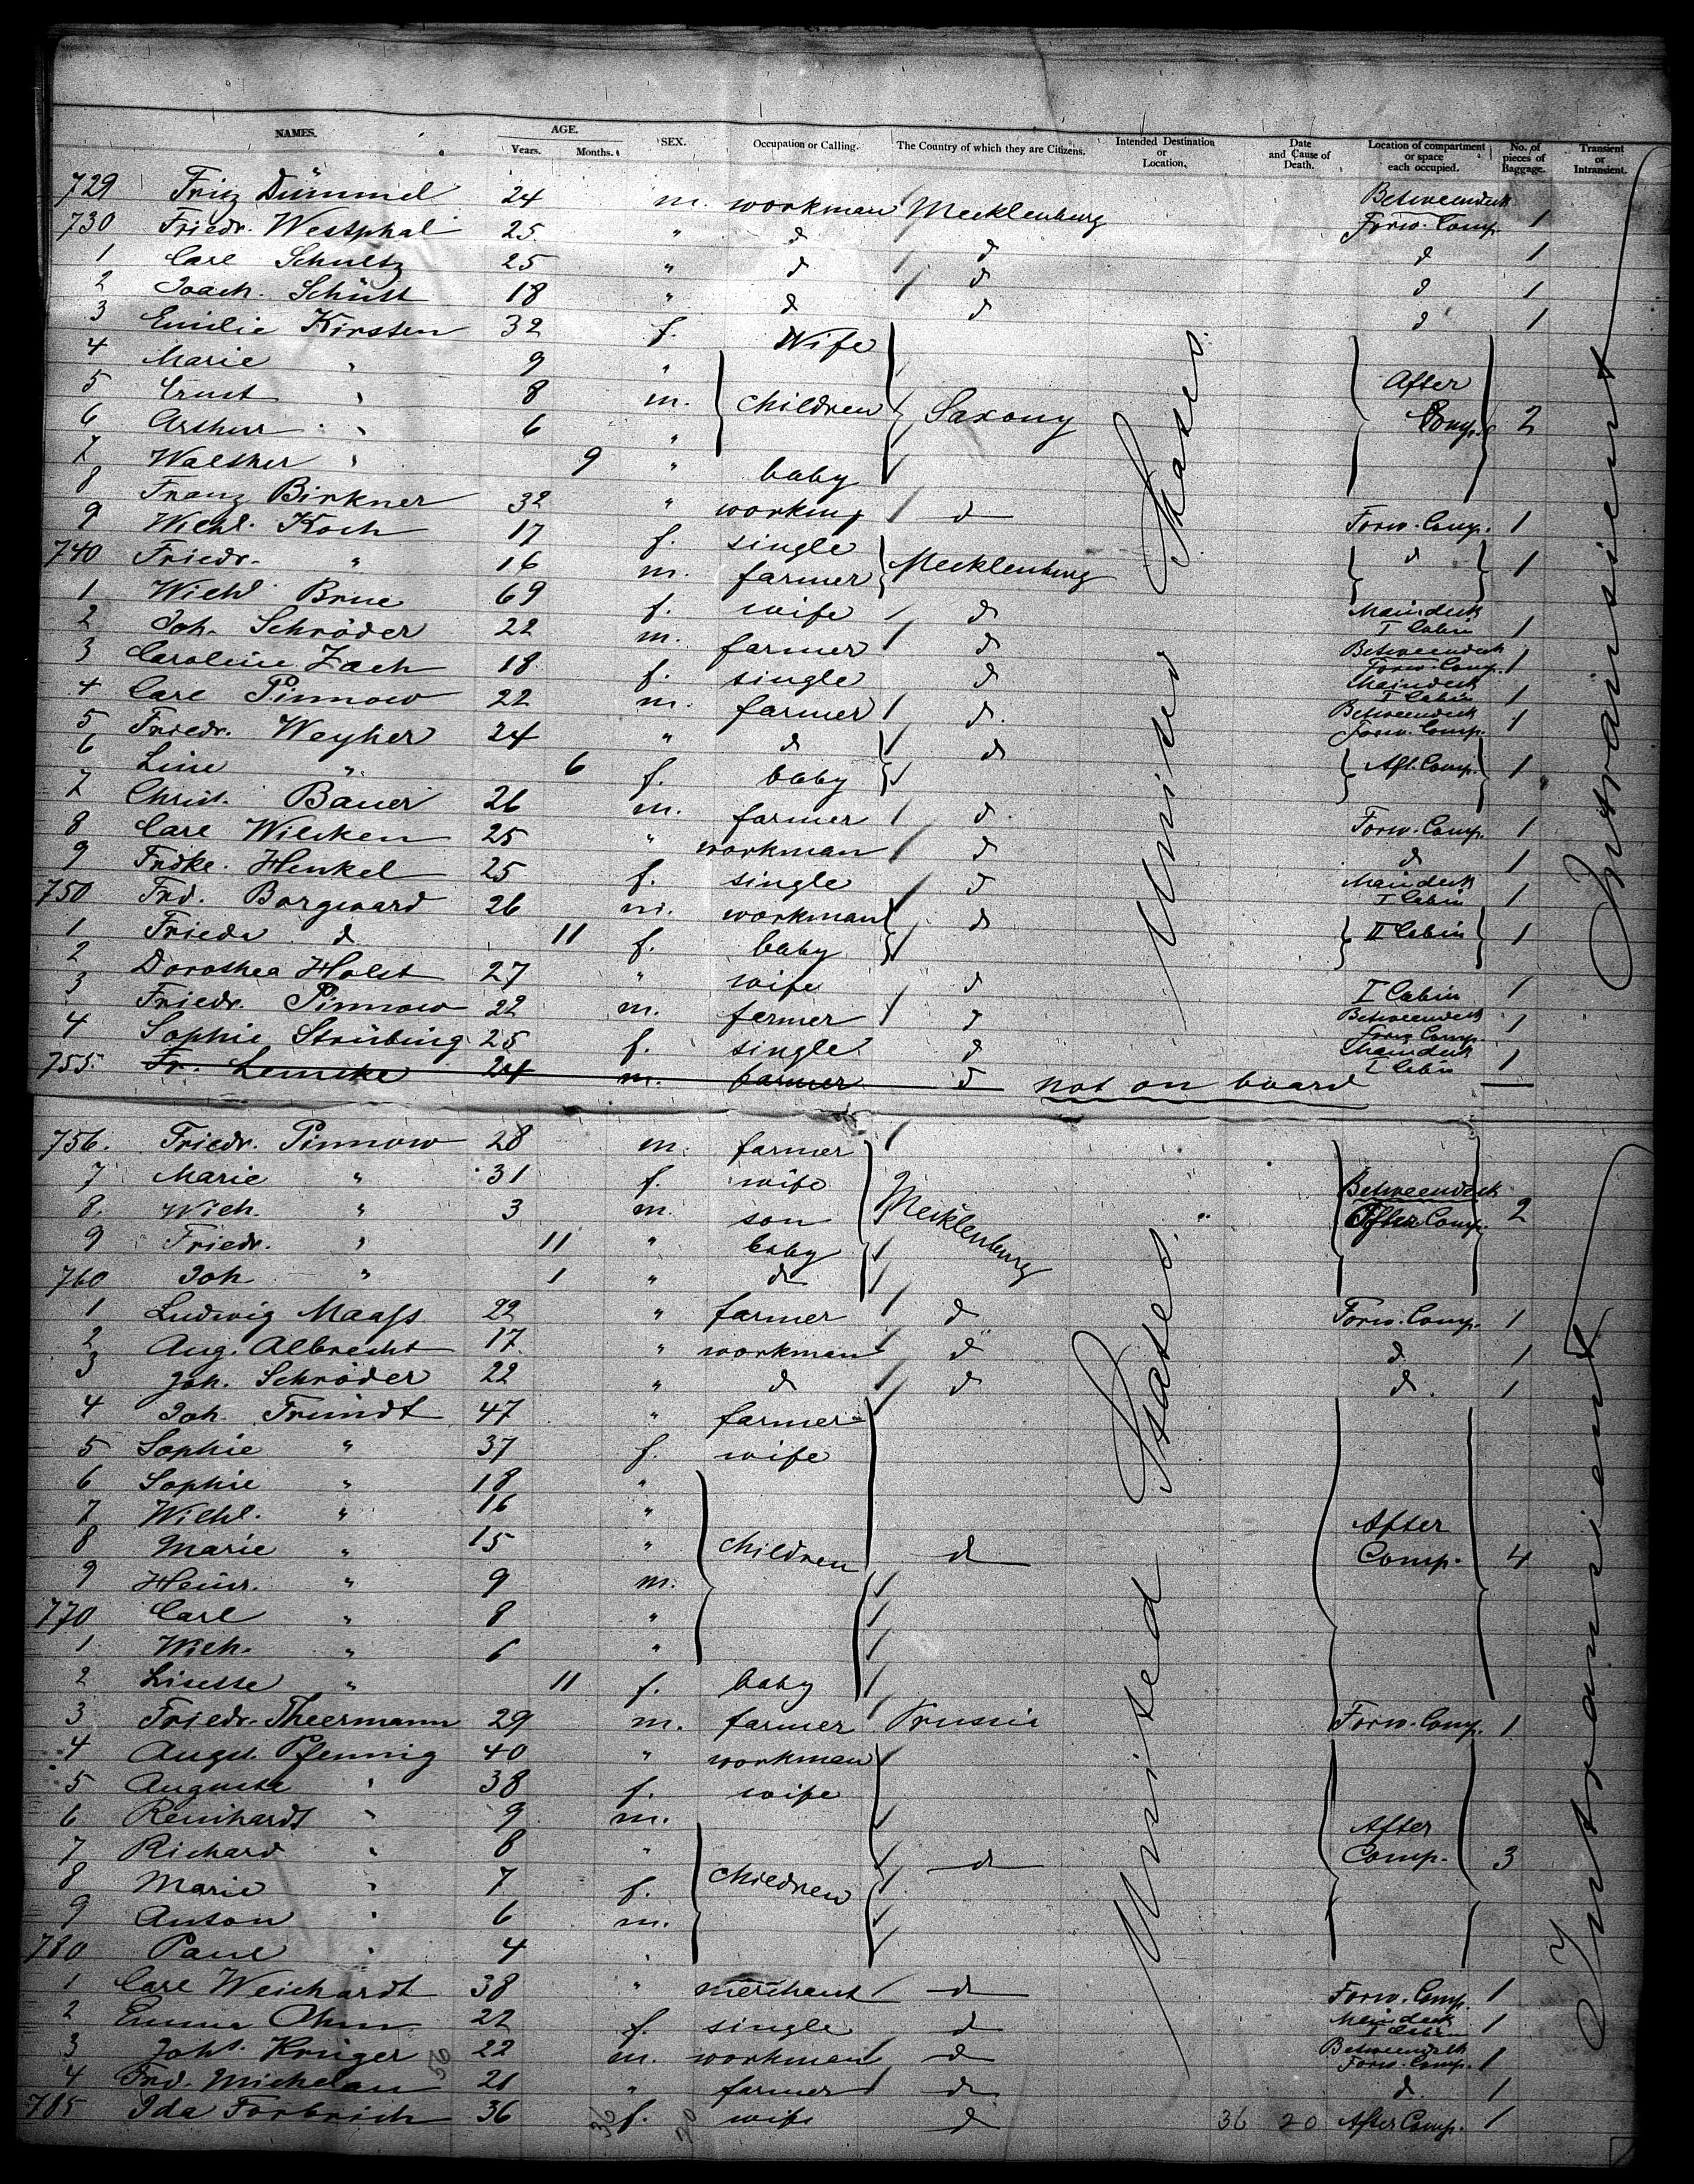 NAMES. AGE. Years. Months. SEX. Occupation or Calling. The Country of which they are Citizens. Intended Destination or Location. Date and Cause of Death. Location of compartment or space each occupied. No. of pieces of Baggage. Transient or Intransient.
729 Fritz Dümmel 24 m. workman Mecklenburg Betweendeck Forw. Comp. 1
730 Friedr. Westphal 25 " d d d 1
1 Carl Schultz 25 " d d d 1
2 Joach. Schütt 18 " d d d 1
3 Emilie Kirsten 32 f. Wife
4 Marie " 9 "
5 Ernst " 8 m. children Saxony After Comp. 2
6 Arthur " 6 "
7 Walther " 9 " baby
8 Franz Birkner 32 " working d Forw. Comp. 1
9 Wilhl. Koch 17 f. single Mecklenburg d 1
740 Friedr. " 16 m. farmer
1 Wilhl Brue 69 f. wife d Maindeck I Cabin 1
2 Joh. Schröder 22 m. farmer d Betweendeck Forw. Comp. 1
3 Caroline Zach 18 f. single d Maindeck I Cabin 1
4 Carl Pinnow 22 m. farmer d. Betweendeck Forw. Comp. 1
5 Friedr. Weyher 24 " d d Aft. Comp. 1
6 Line " 6 f. baby
7 Christ. Bauer 26 m. farmer d. Forw. Comp. 1
8 Carl Wilcken 25 " workman d d 1
9 Fridke. Henkel 25 f. single d Maindeck I Cabin 1
750 Frd. Borgward 26 m. workman d II Cabin 1
1 Frieda d 11 f. baby
2 Dorothea Holst 27 " wife d I Cabin 1
3 Friedr. Pinnow 22 m. farmer d Betweendeck Forw. Comp. 1
4 Sophie Strübing 25 f. single d Maindeck I Cabin 1
755. Fr. Lemcke 24 m. farmer d not on board —
United States
Intransient
756. Friedr. Pinnow 28 m. farmer
7 Marie " 31 f. wife Mecklenburg Betweendeck After Comp. 2
8. Wilh. " 3 m. son
9 Friedr. " 11 " baby
760 Joh " 1 " d
1 Ludwig Maass 22 " farmer d Forw. Comp. 1
2 Aug. Albrecht 17. " workman d d. 1
3 Joh. Schröder 22 " d d d. 1
4 Joh. Fründt 47 " farmer
5 Sophie " 37 f. wife
6 Sophie " 18 "
7 Wilhl. " 16 "
8 Marie " 15 " children d After Comp. 4
9 Heinr. " 9 m.
770 Carl " 8 "
1. Wilh. " 6 "
2 Lisette " 11 f. baby
3 Friedr. Theermann 29 m. farmer Prussia Forw. Comp. 1
4 Augst. Pfennig 40 " workman
5 Auguste " 38 f. wife
6 Reinhardt " 9 m.
7 Richard " 8 " children d After Comp. 3
8 Marie " 7 f.
9 Anton " 6 m.
780 Paul " 4 "
1 Carl Weichardt 38 " merchant d Forw. Comp. 1
2 Emma Ohm 22 f. single d Maindeck I Cabin 1
3 Johs. Krüger 22 m. workman d Betweendeck Forw. Comp. 1
4 Frd. Michelan 21 " farmer d d. 1
785 Ida Forbrich 36 f. wife d 36 20 After Comp. 1
United States.
Intransient